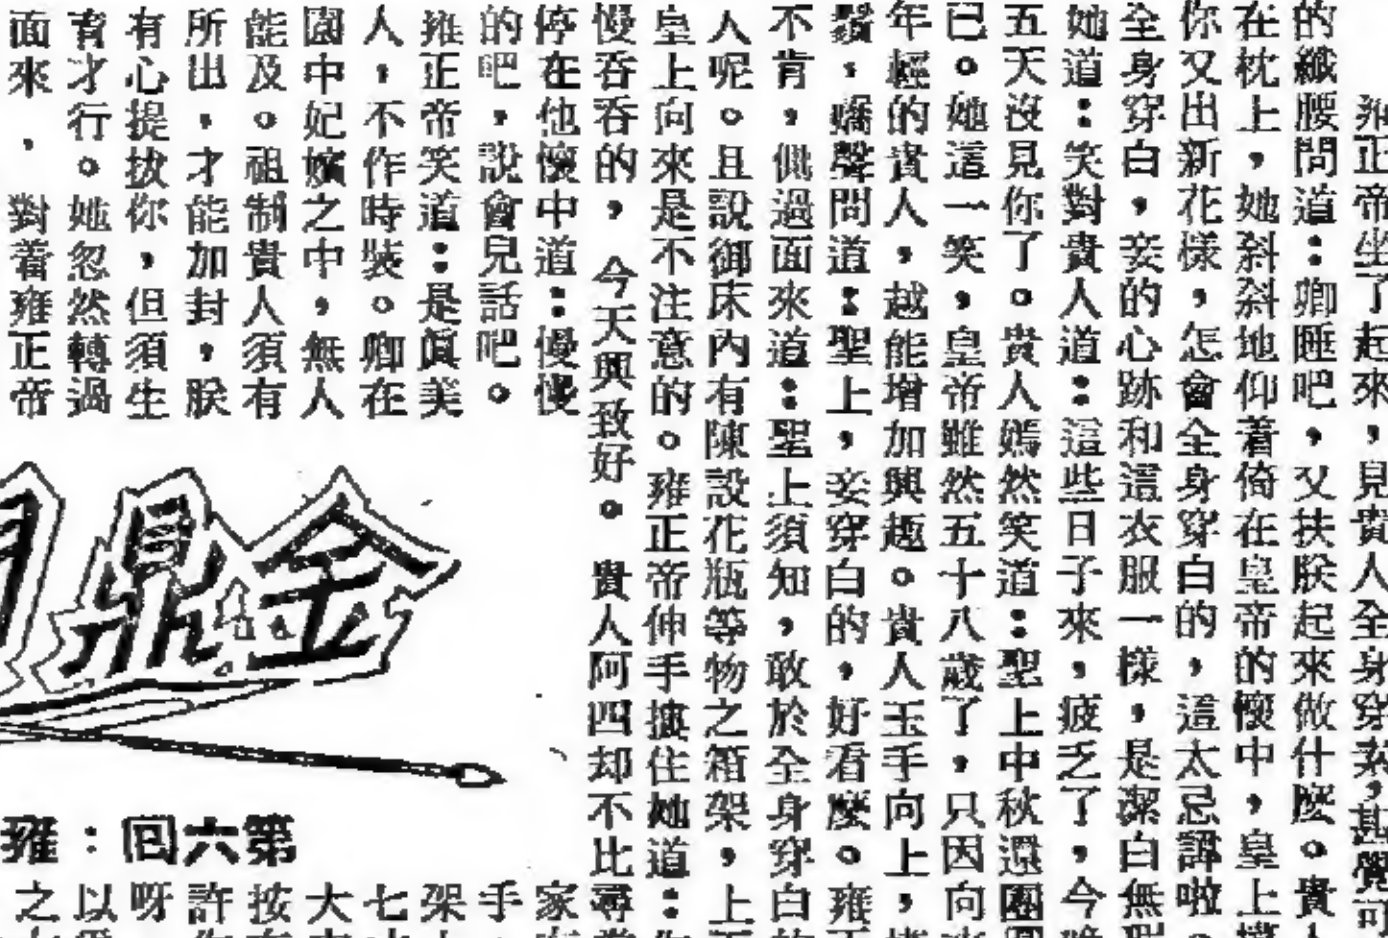 雍正帝坐了起來，見貴人全身穿素，甚覺可
的纖腰問道：卿睡吧，又扶朕起來做什麼。貴
在枕上，她斜斜地仰着倚在皇帝的懷中，皇上
你又出新花樣，怎會全身穿白的，這太忌諱啦。
全身穿白，妾的心跡和這衣服一樣，是潔白無
她道：笑對貴人道：這些日子來，疲乏了，今
五天沒見你了。貴人嫣然笑道：聖上中秋還團
已。她這一笑，皇帝雖然五十八歲了，只因向
年輕的貴人，越能增加興趣。貴人玉手向上，
鬚，嬌聲問道：聖上，妾穿白的，好看麼。雍
不肯，俱過面來道：聖上須知，敢於全身穿白
人呢。且說御床內有陳設花瓶等物之箱架，上
皇上向來是不注意的。雍正帝伸手摟住她道：
慢吞吞的，今天興致好。貴人阿四却不比尋
停在他懷中道：慢慢
的吧，說會兒話吧。
雍正帝笑道：是眞美
人，不作時裝。卿在
園中妃嬪之中，無人
能及。祖制貴人須有
所出，才能加封，朕
有心提拔你，但須生
育才行。她忽然轉過
面來，對着雍正帝
金鼎
第六回：雍
家
手
架
七
大
按
許
呀
以
之